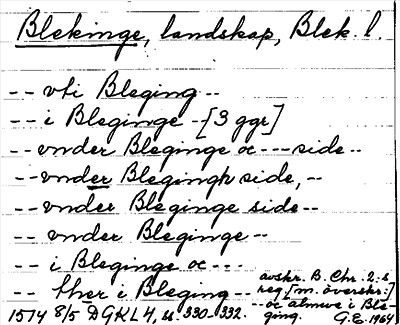 Blekinge, landskap, Blek. l.
-- vti Bleging --
-- i Bleginge -[3 ggr]
-- vnder Bleginge oc --- side --
-- vnder Blegingh side, --
-- vnder Bleginge side --
-- vnder Bleginge --
-- i Bleginge oc ---
-- ther i Bleging --
avskr. B. Chr. 2:s
reg. [m. överskr.:]
-- oc almwe i Ble-
ging.
1514 8/5 DGKL 4, s. 330-332. G.E. 1964